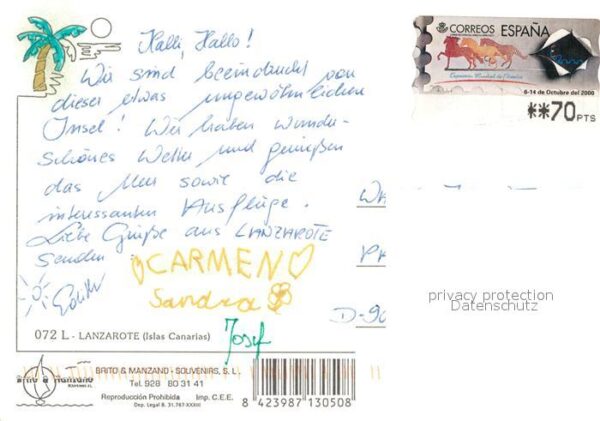 Halli, Hallo!
Wir sind beeindruckt von
dieser etwas ungewöhnlichen
Insel! Wir haben wunder-
schönes Wetter und genießen
das Meer sowie die
interessanten Ausflüge.
Liebe Grüße aus LANZAROTE
senden
CARMEN
Edith
Sandra
Josef
CORREOS ESPAÑA
6-14 de Octubre del 2000
**70 PTS
D-90
privacy protection
Datenschutz
072 L - LANZAROTE (Islas Canarias)
Brito & Manzano
BRITO & MANZANO - SOUVENIRS, S. L.
Tel. 928 80 31 41
Reproducción Prohibida Imp. C.E.E.
Dep. Legal B. 31.767-XXXIII
8 423987 130508